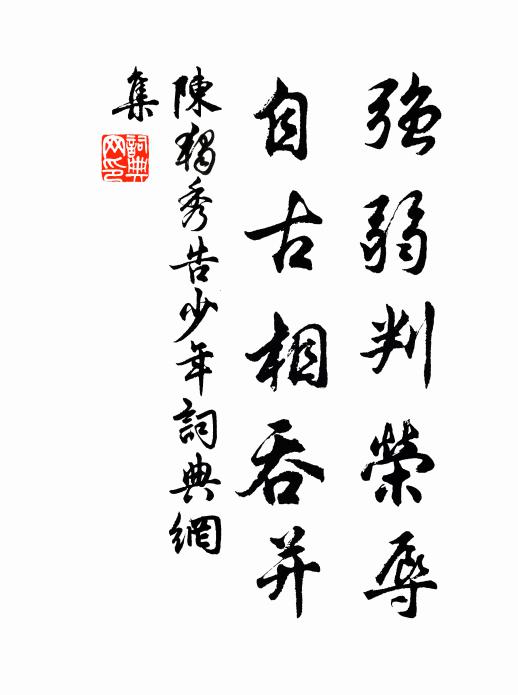 强弱判榮辱
自古相吞并
陳獨秀告少年詞典網
集
詞典
网印